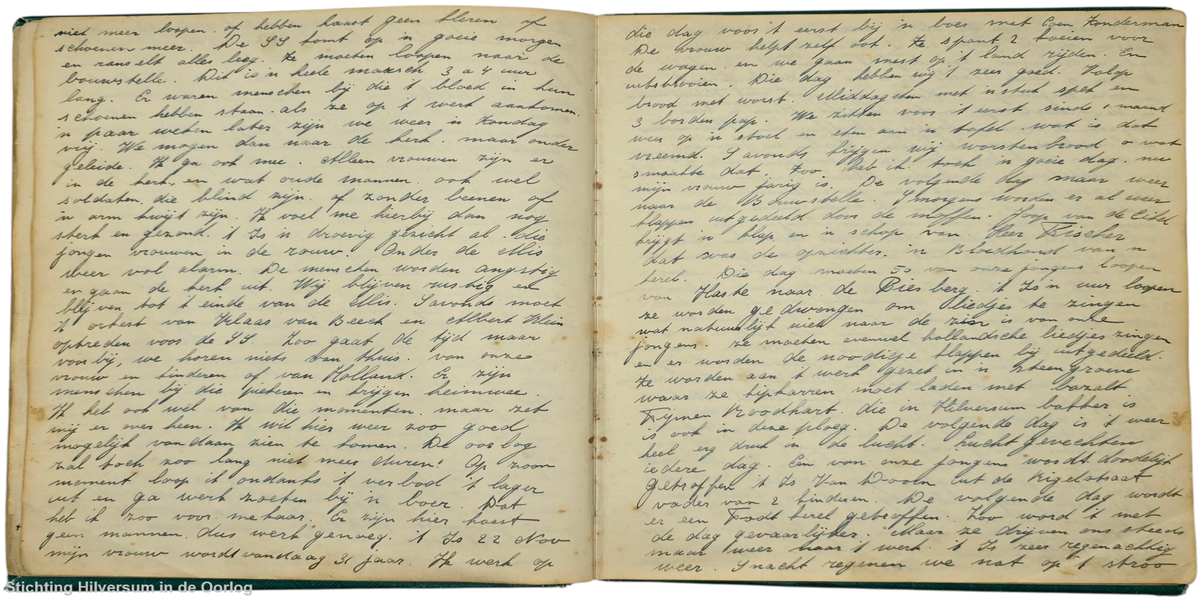 niet meer loopen. of hebben haast geen kleren of
schoenen meer. De SS komt op 'n goeie morgen
en ranselt alles leeg. Ze moeten loopen naar de
bouwstelle. Dit is 'n heele marsch 3 a 4 uur
lang. Er waren menschen bij die 't bloed in hun
schoenen hebben staan. als ze op 't werk aankomen.
'n paar weken later zijn we weer 'n Zondag
vrij. We mogen dan naar de kerk. maar onder
geleide. Ik ga ook mee. Alleen vrouwen zijn er
in de kerk en wat oude mannen. ook wel
soldaten die blind zijn. of zonder beenen of
'n arm kwijt zijn. Ik voel me hierbij dan nog
sterk en gezond. 't Is 'n droevig gezicht al die
jongen vrouwen in de rouw. Onder de Mis
weer vol alarm. De menschen worden angstig
en gaan de kerk uit. Wij blijven rustig en
blijven tot 't einde van de Mis. S avonds moet
't orkest van Klaas van Beeck en Albert Klein
optreden voor de SS. Zoo gaat de tijd maar
voorbij, we horen niets van thuis. van onze
vrouw en kinderen of van Holland. Er zijn
menschen bij die pieteren en krijgen heimwee.
Ik heb ook wel van die momenten. maar zet
mij er over heen. Ik wil hier weer zoo goed
mogelijk vandaan zien te komen. De oorlog
zal toch zoo lang niet meer duren! Op zoon
moment loop ik ondanks 't verbod 't lager
uit en ga werk zoeken bij 'n boer. Dat
heb ik zoo voor mekaar. Er zijn hier haast
geen mannen. dus werk genoeg. 't Is 22 Nov
mijn vrouw wordt vandaag 31 jaar. Ik werk op
die dag voor 't eerst bij 'n boer met Coen Zonderman
De vrouw helpt zelf ook. Ze spant 2 koeien voor
de wagen. en we gaan mest op 't land rijden. En
uitstrooien. Die dag hebben wij 't zeer goed. Volop
brood met worst. Middageten met 'n stuk spek en
3 borden pap. We zitten voor 't eerst sinds 1 maand
weer op 'n stoel en eten aan 'n tafel. wat is dat
vreemd. S avonds krijgen wij worstenbrood o wat
smaakte dat. Zoo heb ik toch 'n goeie dag. nu
mijn vrouw jarig is. De volgende dag maar weer
naar de Bouwstelle. Smorgens worden er al weer
klappen uitgedeeld door de moffen. Joop van de Eikel
krijgt 'n klap en 'n schop van Heer Fischer
dat was de opzichter. 'n Bloedhond van 'n
kerel. Die dag moeten 50 van onze jongens loopen
van Haste naar de Piesberg. 't Is 'n uur loopen
ze worden gedwongen om liedjes te zingen
wat natuurlijk niet naar de zin is van onze
jongens. ze moeten evenwel hollandsche liedjes zingen
en er worden de noodige klappen bij uitgedeeld.
Ze worden aan 't werk gezet in 'n steengroeve
waar ze kipkarren moet laden met bazalt
Krijnen Roodhart. die in Hilversum bakker is
is ook in deze ploeg. De volgende dag is 't weer
heel erg druk in de lucht. Luchtgevechten
iedere dag. Een van onze jongens wordt doodelijk
getroffen 't Is Van Dooln uit de Rigelstraat
vader van 2 kinderen. De volgende dag wordt
er een Todt kerel getroffen. Zoo word 't met
de dag gevaarlijker. Maar ze drijven ons steeds
maar weer naar 't werk. 't Is zeer regenachtig
weer. Snacht regenen we nat op 't stroo
Stichting Hilversum in de Oorlog